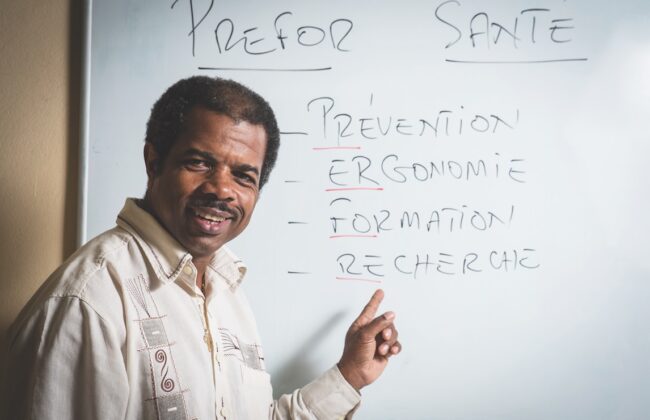 PREFOR SANTÉ
- PRÉVENTION
- ERGONOMIE
- FORMATION
- RECHERCHE